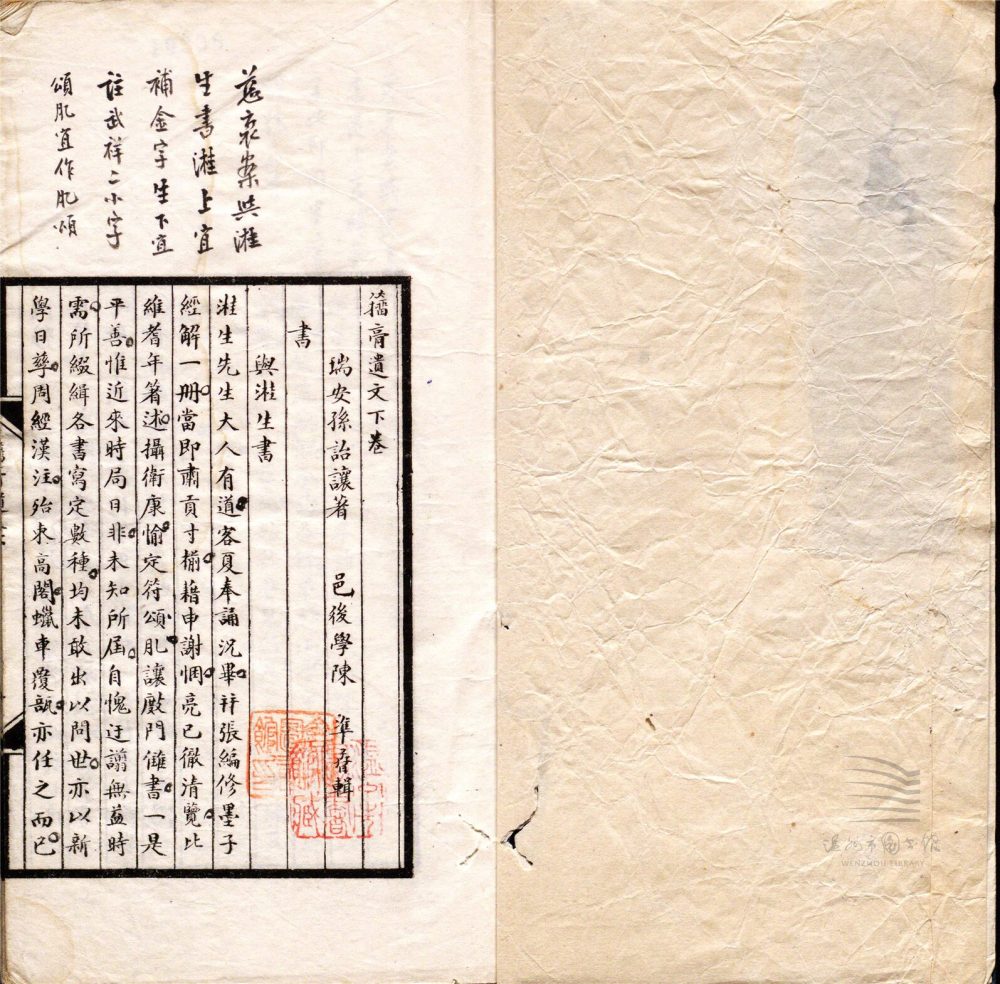 慈衷案與溎
生書溎上宜
補金字生下宜
註武祥二小字
頌肊宜作肊頌
籀膏遺文下卷
瑞安孫詒讓著 邑後學陳 準 輯
書
與溎生書
溎生先生大人有道客夏奉誦況畢并張編修墨子
經解一冊當即肅貢寸椾藉申謝悃亮已徹清覽比
維耆年著述攝衛康愉定符頌肊讓廄門讎書一是
平善惟近來時局日非未知所屆自愧迂譾無益時
需所綴緝各書寫定數種均未敢出以問世亦以新
學日孳周經漢注殆束高閣蠟車覆瓿亦任之而已
温州市图书馆
WENZHOU LIBRARY